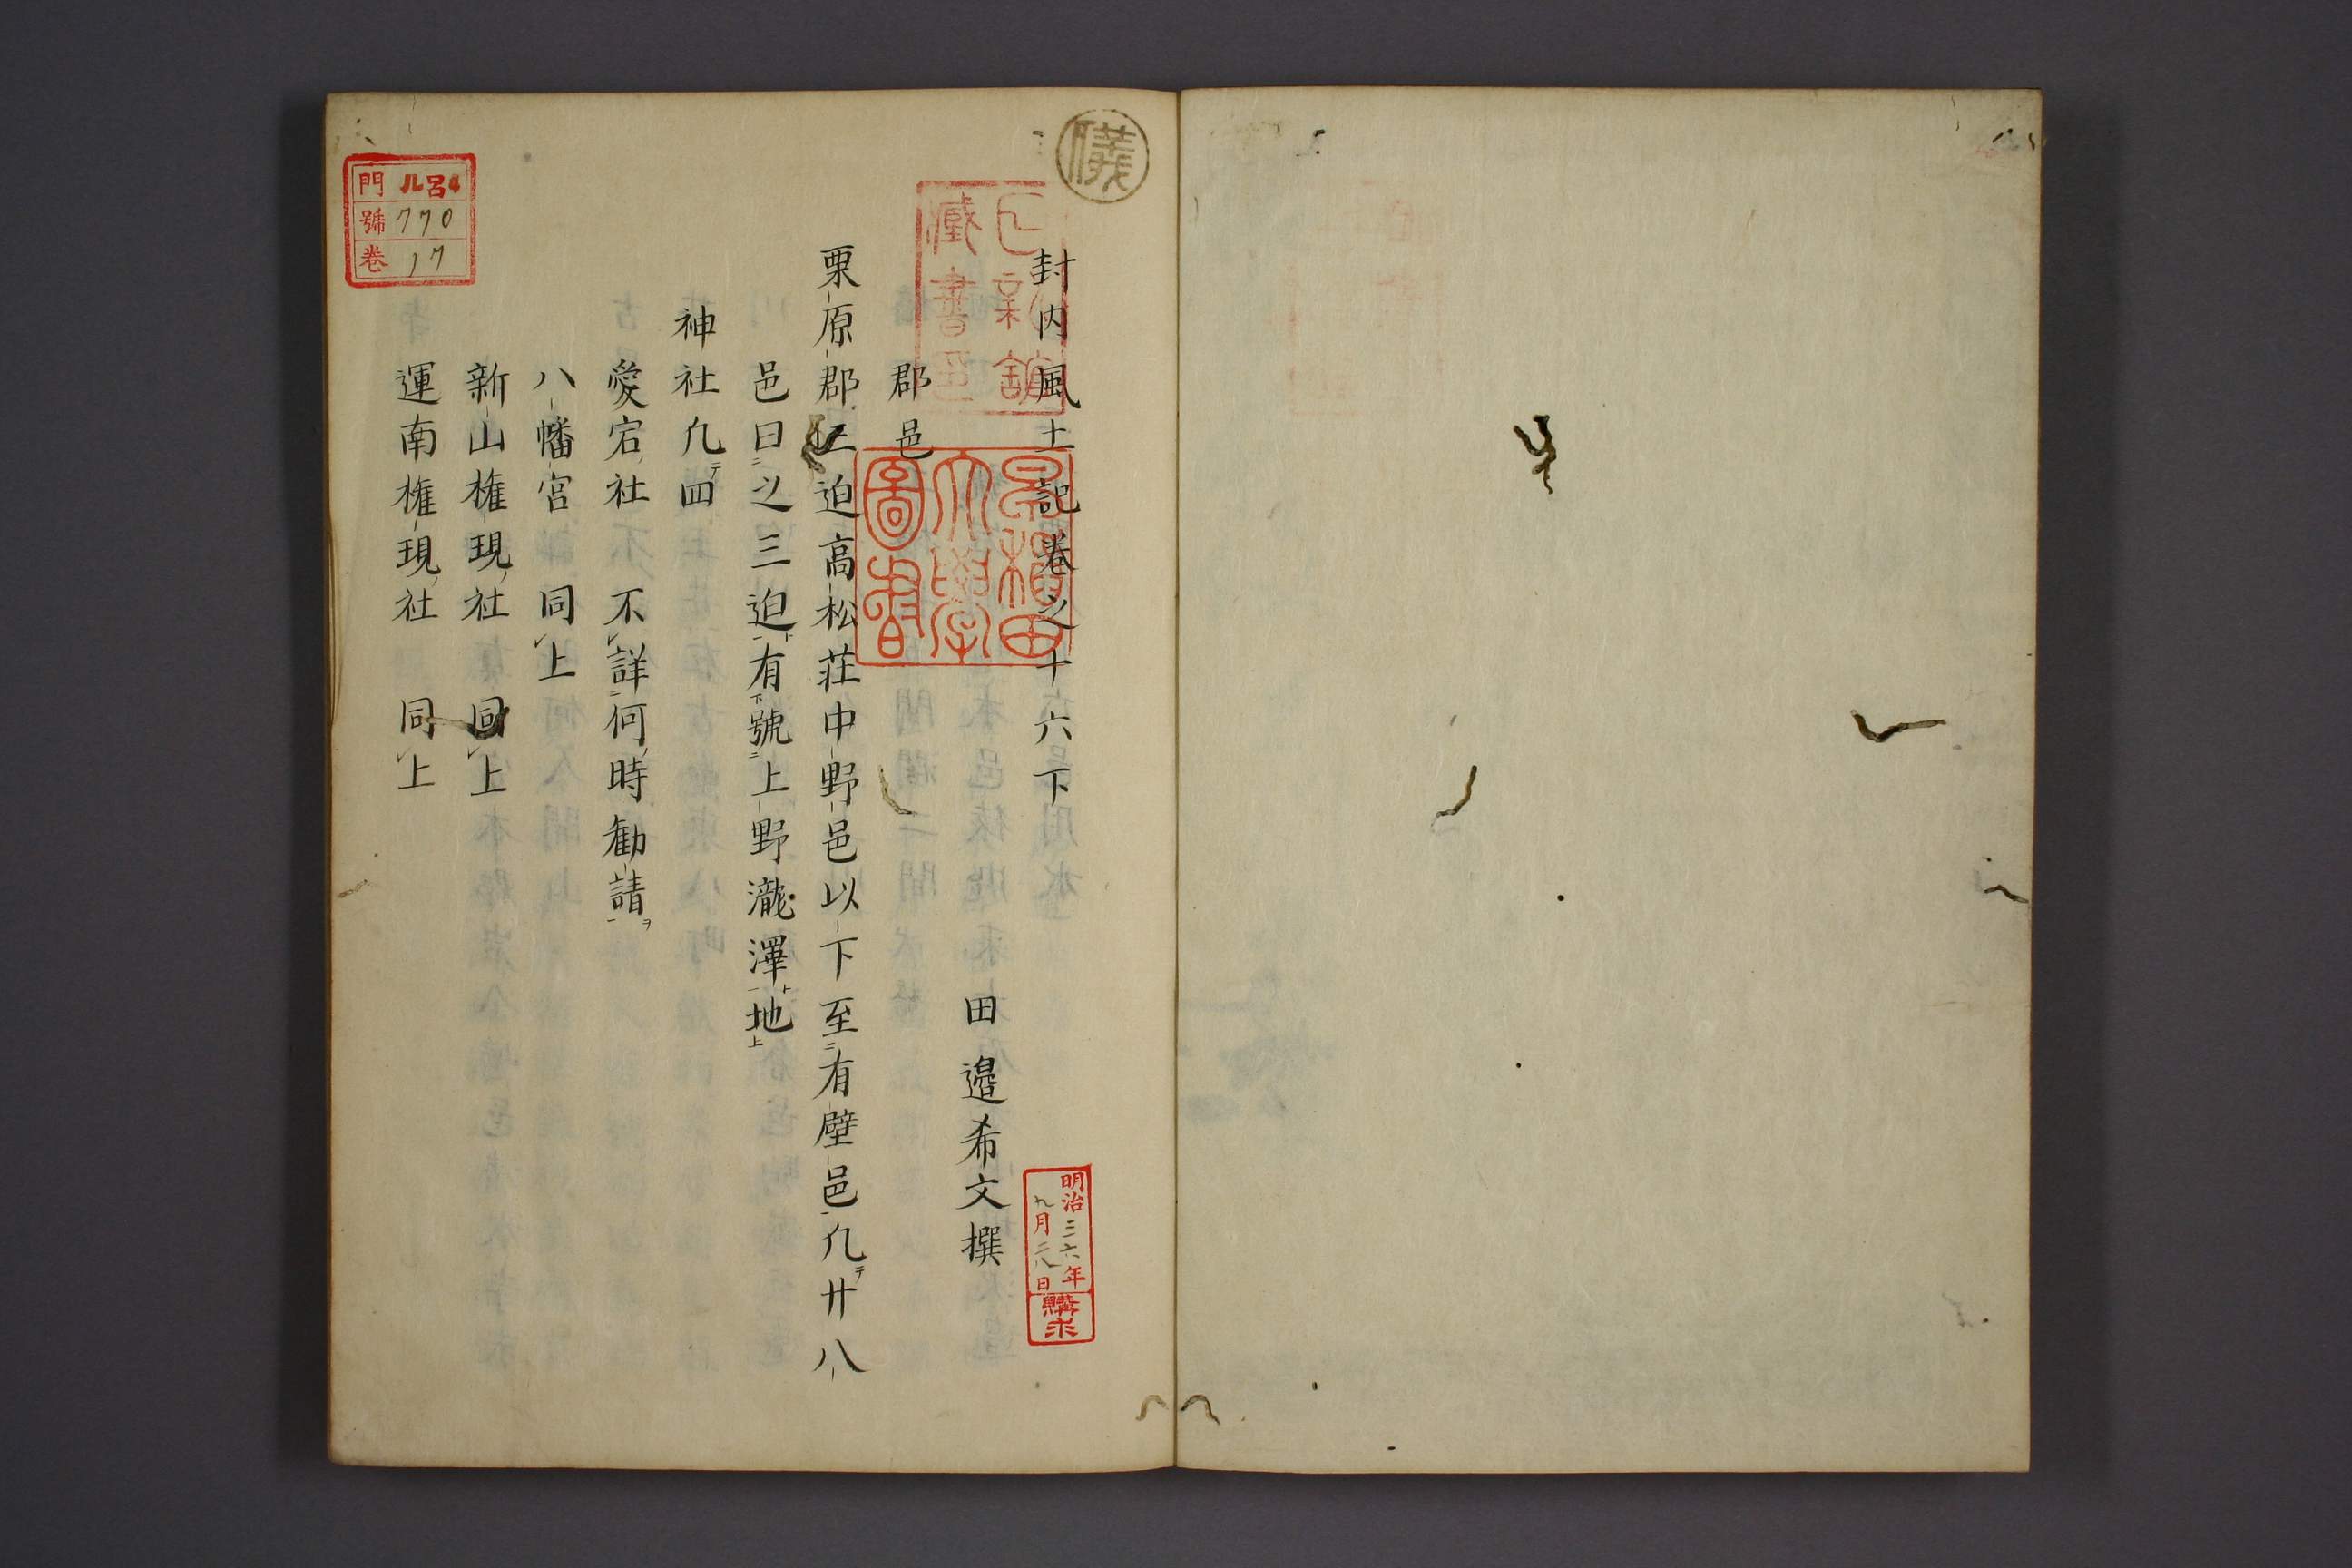 封内風土記巻之十六下
田邉希文撰
郡邑
栗原郡三迫高松荘中野邑以下至有壁邑凢廿八
邑曰之三迫有號上野瀧澤地
神社凢四
愛宕社 不詳何時勧請
八幡宮 同上
新山権現社 同上
運南権現社 同上
早稲田
大學
圖書
藏書
明治三六年
九月二八日
購求
門 ル呂4
號 770
巻 17